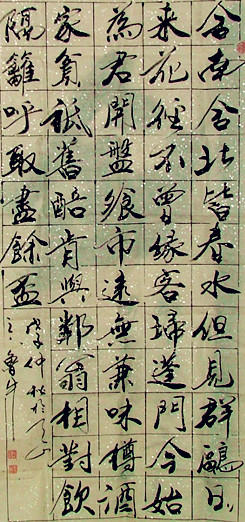 舍南舍北皆春水但見群鷗日々
來花徑不曾緣客掃蓬門今始
為君開盤飱市遠無兼味樽酒
家貧祇舊醅肯與鄰翁相對飲
隔籬呼取盡餘盃
仲秋於